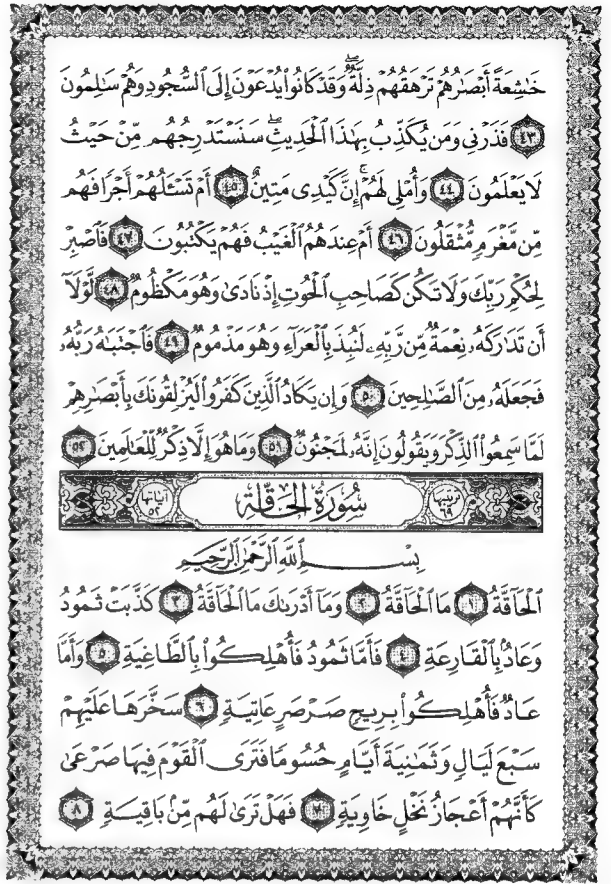 خَٰشِعَةً أَبْصَٰرُهُمْ تَرْهَقُهُمْ ذِلَّةٌۖ وَقَدْ كَانُوا۟ يُدْعَوْنَ إِلَى ٱلسُّجُودِ وَهُمْ سَٰلِمُونَ
٤٣ فَذَرْنِى وَمَن يُكَذِّبُ بِهَٰذَا ٱلْحَدِيثِۖ سَنَسْتَدْرِجُهُم مِّنْ حَيْثُ
لَا يَعْلَمُونَ ٤٤ وَأُمْلِى لَهُمْۚ إِنَّ كَيْدِى مَتِينٌ ٤٥ أَمْ تَسْـَٔلُهُمْ أَجْرًا فَهُم
مِّن مَّغْرَمٍ مُّثْقَلُونَ ٤٦ أَمْ عِندَهُمُ ٱلْغَيْبُ فَهُمْ يَكْتُبُونَ ٤٧ فَٱصْبِرْ
لِحُكْمِ رَبِّكَ وَلَا تَكُن كَصَاحِبِ ٱلْحُوتِ إِذْ نَادَىٰ وَهُوَ مَكْظُومٌ ٤٨ لَّوْلَآ
أَن تَدَٰرَكَهُۥ نِعْمَةٌ مِّن رَّبِّهِۦ لَنُبِذَ بِٱلْعَرَآءِ وَهُوَ مَذْمُومٌ ٤٩ فَٱجْتَبَٰهُ رَبُّهُۥ
فَجَعَلَهُۥ مِنَ ٱلصَّٰلِحِينَ ٥٠ وَإِن يَكَادُ ٱلَّذِينَ كَفَرُوا۟ لَيُزْلِقُونَكَ بِأَبْصَٰرِهِمْ
لَمَّا سَمِعُوا۟ ٱلذِّكْرَ وَيَقُولُونَ إِنَّهُۥ لَمَجْنُونٌ ٥١ وَمَا هُوَ إِلَّا ذِكْرٌ لِّلْعَٰلَمِينَ ٥٢
ترتيبها ٦٩ سُورَةُ الحَاقَّة آياتها ٥٢
بِسْمِ ٱللَّهِ ٱلرَّحْمَٰنِ ٱلرَّحِيمِ
ٱلْحَآقَّةُ ١ مَا ٱلْحَآقَّةُ ٢ وَمَآ أَدْرَىٰكَ مَا ٱلْحَآقَّةُ ٣ كَذَّبَتْ ثَمُودُ
وَعَادٌۢ بِٱلْقَارِعَةِ ٤ فَأَمَّا ثَمُودُ فَأُهْلِكُوا۟ بِٱلطَّاغِيَةِ ٥ وَأَمَّا
عَادٌ فَأُهْلِكُوا۟ بِرِيحٍ صَرْصَرٍ عَاتِيَةٍ ٦ سَخَّرَهَا عَلَيْهِمْ
سَبْعَ لَيَالٍ وَثَمَٰنِيَةَ أَيَّامٍ حُسُومًا فَتَرَى ٱلْقَوْمَ فِيهَا صَرْعَىٰ
كَأَنَّهُمْ أَعْجَازُ نَخْلٍ خَاوِيَةٍ ٧ فَهَلْ تَرَىٰ لَهُم مِّنۢ بَاقِيَةٍ ٨